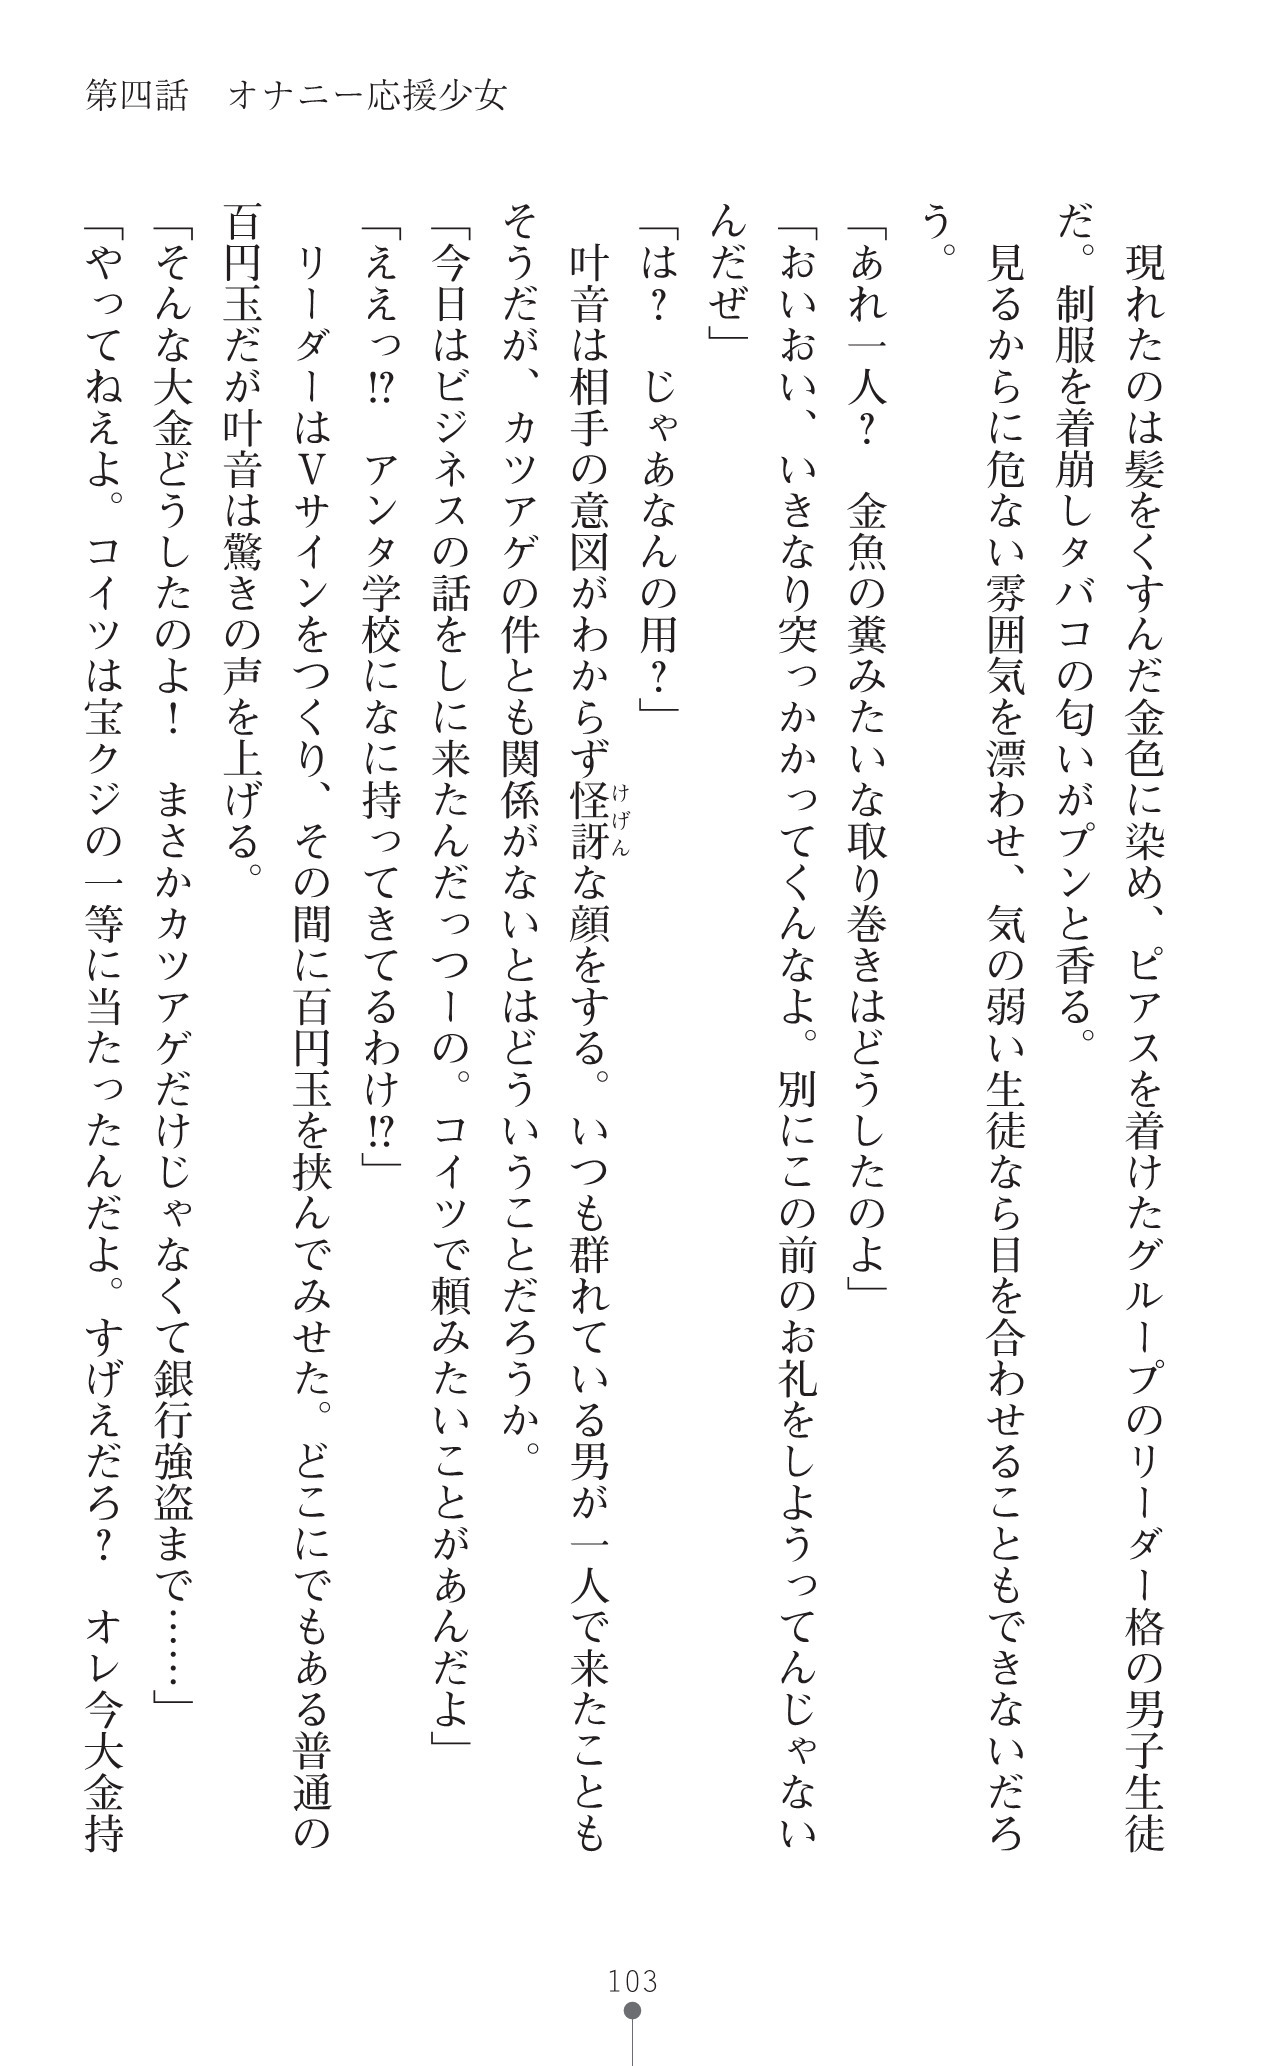 第四話　オナニー応援少女
　現れたのは髪をくすんだ金色に染め、ピアスを着けたグループのリーダー格の男子生徒
だ。制服を着崩しタバコの匂いがプンと香る。
　見るからに危ない雰囲気を漂わせ、気の弱い生徒なら目を合わせることもできないだろ
う。
「あれ一人？　金魚の糞みたいな取り巻きはどうしたのよ」
「おいおい、いきなり突っかかってくんなよ。別にこの前のお礼をしようってんじゃない
んだぜ」
「は？　じゃあなんの用？」
　叶音は相手の意図がわからず怪訝な顔をする。いつも群れている男が一人で来たことも
けげん
そうだが、カツアゲの件とも関係がないとはどういうことだろうか。
「今日はビジネスの話をしに来たんだっつーの。コイツで頼みたいことがあんだよ」
「ええっ!?　アンタ学校になに持ってきてるわけ!?」
　リーダーはＶサインをつくり、その間に百円玉を挟んでみせた。どこにでもある普通の
百円玉だが叶音は驚きの声を上げる。
「そんな大金どうしたのよ！　まさかカツアゲだけじゃなくて銀行強盗まで……」
「やってねえよ。コイツは宝クジの一等に当たったんだよ。すげえだろ？　オレ今大金持
103